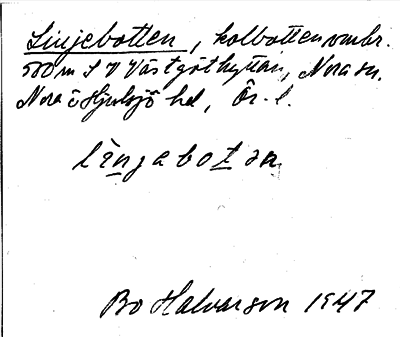 Linjebotten, kolbotten omkr.
500 m S V Västgöthyttan, Nora sn,
Nora o Hjulsjö hd, Ör. l.
linjabotən
Bo Halvarson 1947